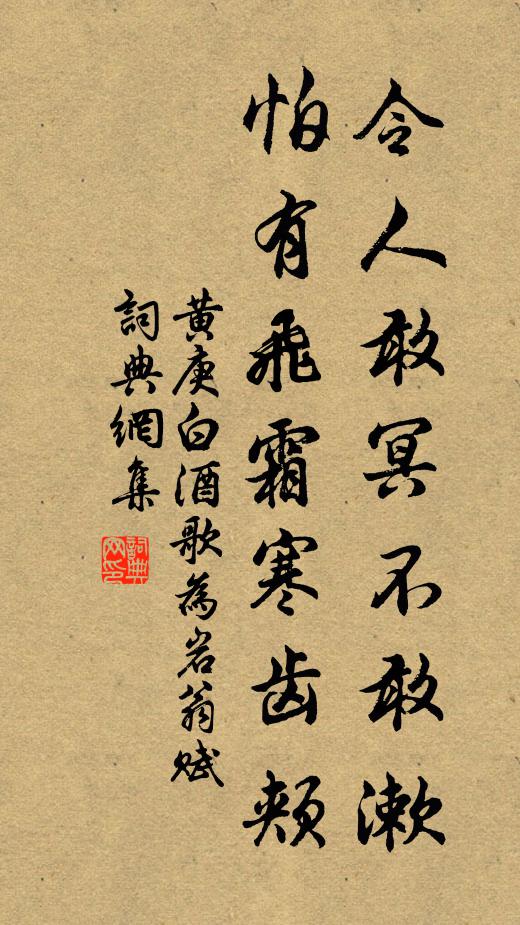 令人敢冥不敢漱
怕有飛霜寒齿頰
黄庚白酒歌為岩翁赋
詞典網集
詞典网印